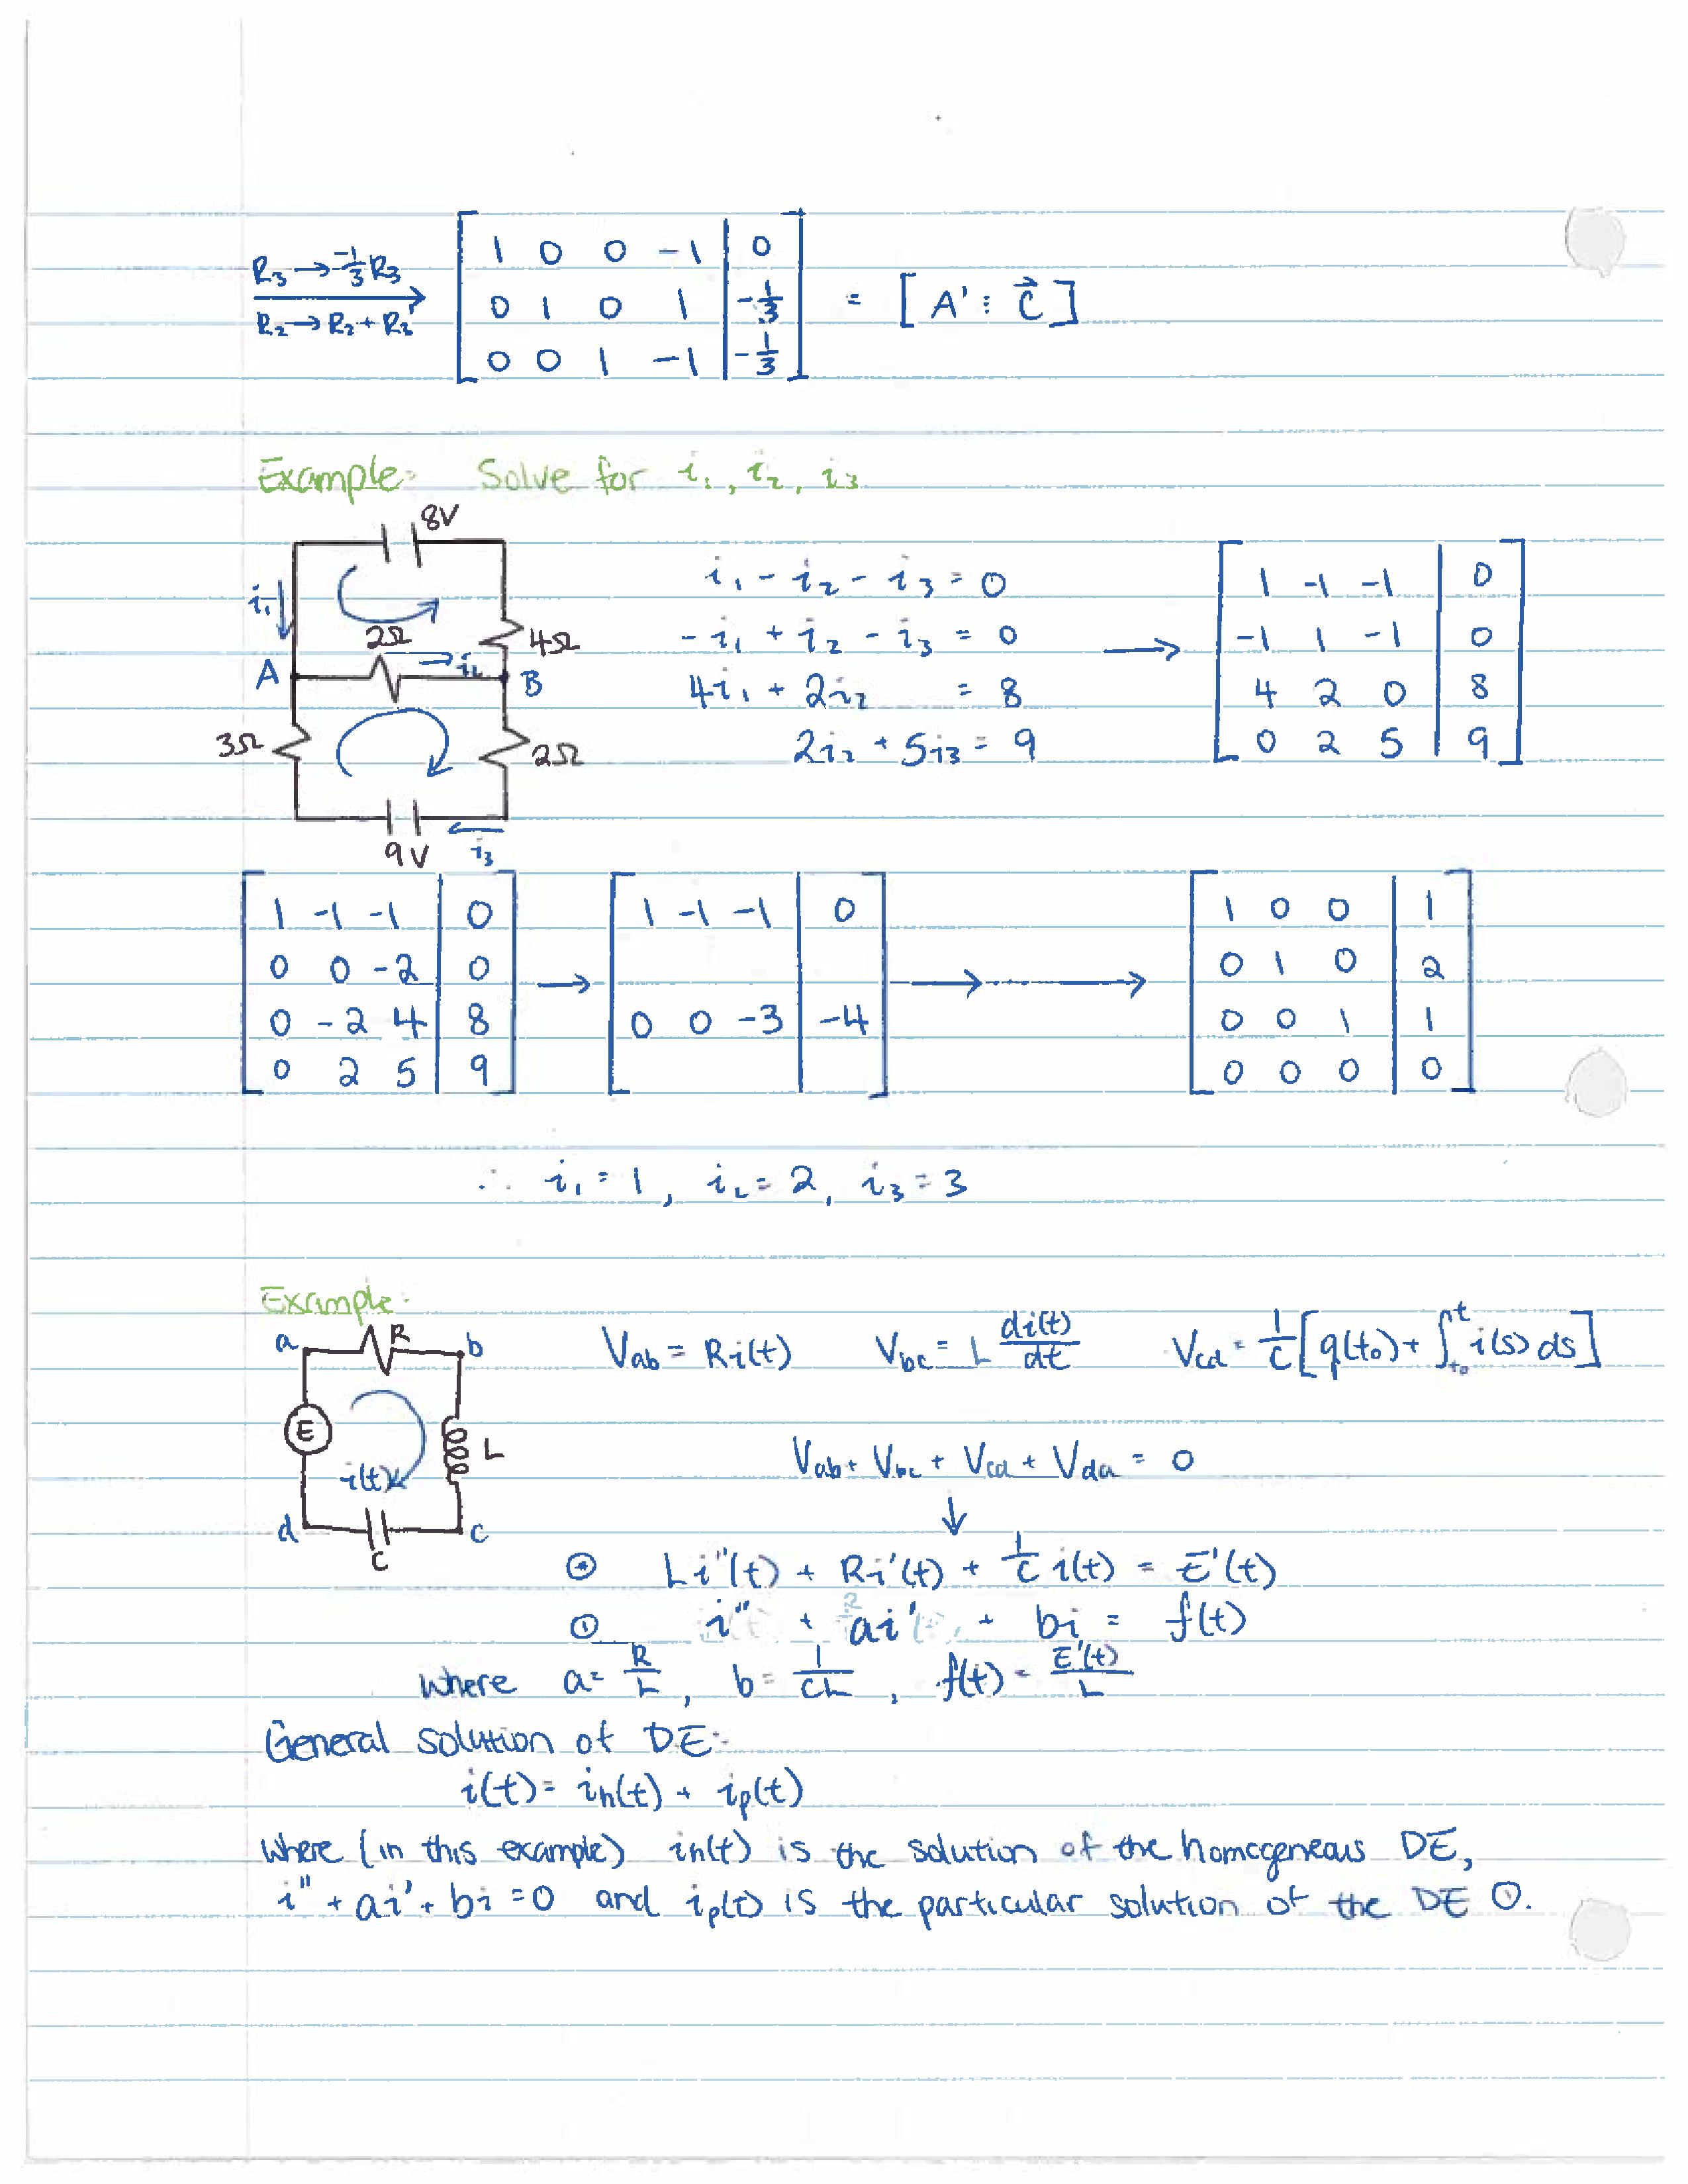 R₃ → -1/3 R₃
R₂ → R₂ + R₂'
[ 1 0 0 -1 | 0
0 1 0 1 | -1/3
0 0 1 -1 | -1/3 ] = [ A' ⋮ c⃗ ]
Example: Solve for i₁, i₂, i₃
8V
i₁
2Ω
4Ω
A
i₂
B
3Ω
2Ω
9V
i₃
i₁ - i₂ - i₃ = 0
-i₁ + i₂ - i₃ = 0
4i₁ + 2i₂ = 8
2i₂ + 5i₃ = 9
→
[ 1 -1 -1 | 0
-1 1 -1 | 0
4 2 0 | 8
0 2 5 | 9 ]
[ 1 -1 -1 | 0
0 0 -2 | 0
0 -2 4 | 8
0 2 5 | 9 ]
→
[ 1 -1 -1 | 0
0 0 -3 | -4 ]
→ →
[ 1 0 0 | 1
0 1 0 | 2
0 0 1 | 1
0 0 0 | 0 ]
∴ i₁ = 1, i₂ = 2, i₃ = 3
Example:
a R b
E
L
i(t)
d C c
V_ab = Ri(t) V_bc = L di(t)/dt V_cd = 1/C [q(t₀) + ∫_t₀^t i(s) ds]
V_ab + V_bc + V_cd + V_da = 0
↓
⊛ Li''(t) + Ri'(t) + 1/C i(t) = E'(t)
① i'' + ai' + bi = f(t)
where a = R/L, b = 1/CL, f(t) = E'(t)/L
General solution of DE:
i(t) = i_h(t) + i_p(t)
where (in this example) i_h(t) is the solution of the homogeneous DE,
i'' + ai' + bi = 0 and i_p(t) is the particular solution of the DE ①.